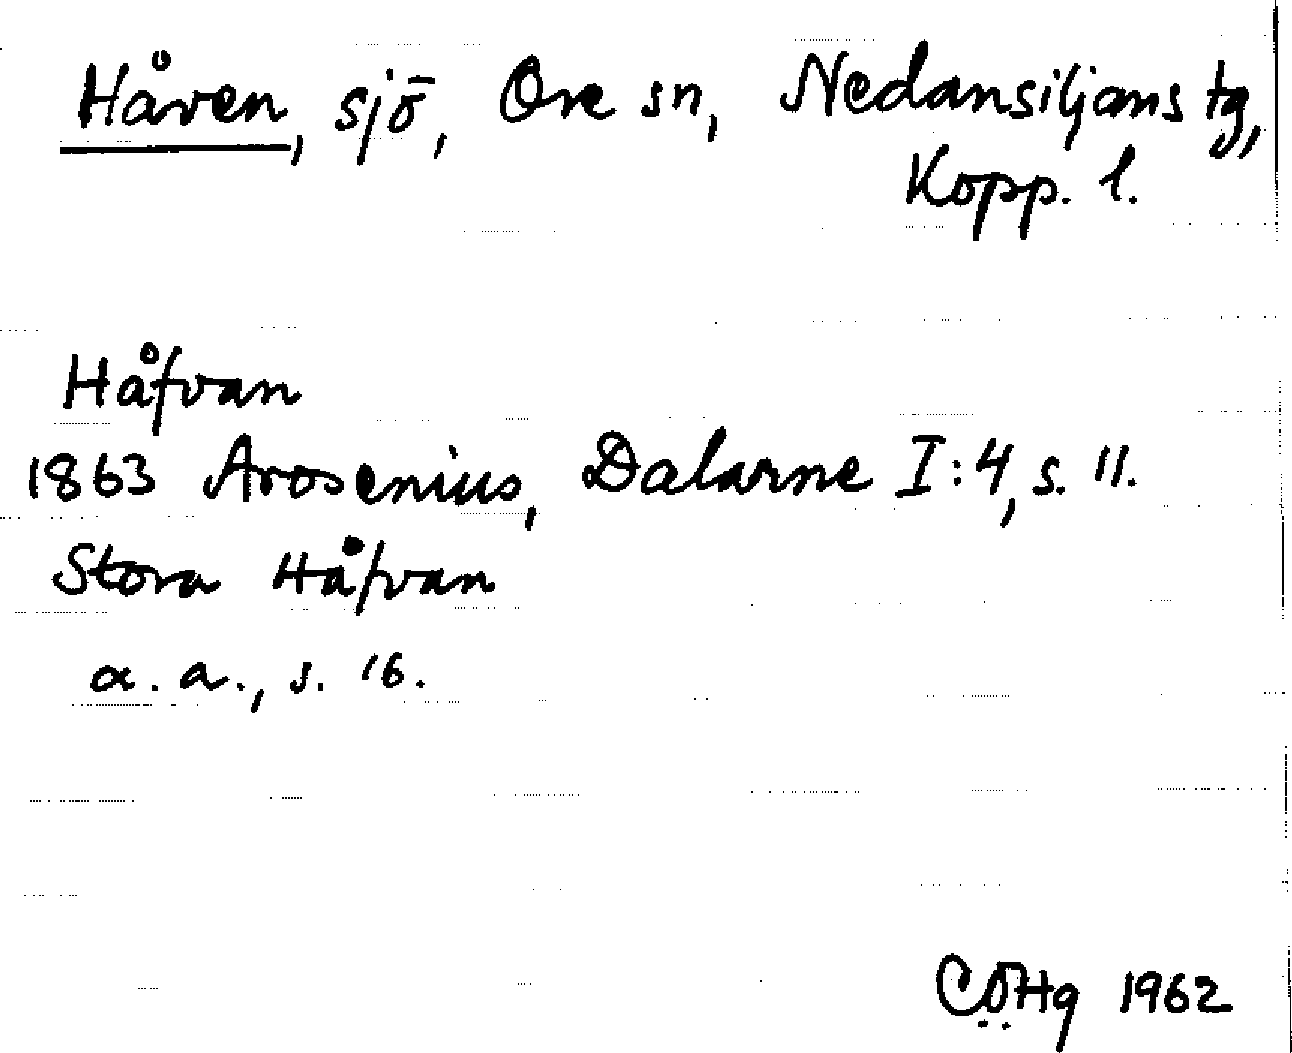 Håven, sjö, Ore sn, Nedansiljans tg,
Kopp. l.
Håfvan
1863 Arosenius, Dalarne I:4, s. 11.
Stora Håfvan
a. a., s. 16.
CÖHg 1962